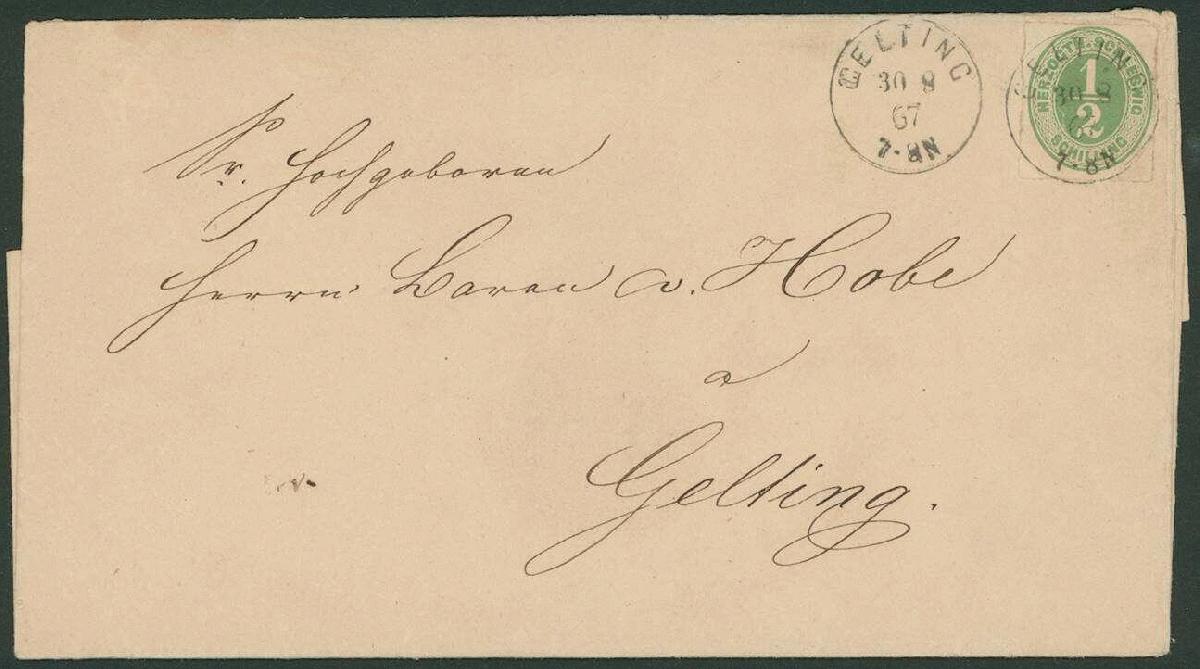 GELTING
30 8
67
7-8N.
HERZOGTH. SCHLESWIG
1/2
SCHILLING
GELTING
30 8
7-8N
Sr. Hochgeboren
Herrn Baron v. Hobe
a
Gelting.